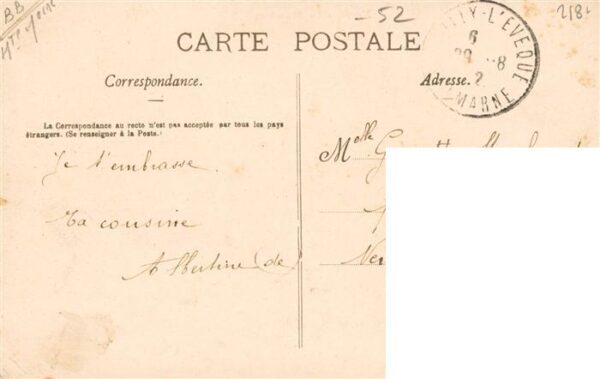 BB
-52
218
CARTE POSTALE
LLY-L'EVEQUE
6
-8
MARNE
Correspondance.
Adresse.
La Correspondance au recto n'est pas acceptée par tous les pays
étrangers. (Se renseigner à la Poste.)
Melle
Je t'embrasse
Ta cousine
Albertine (de)